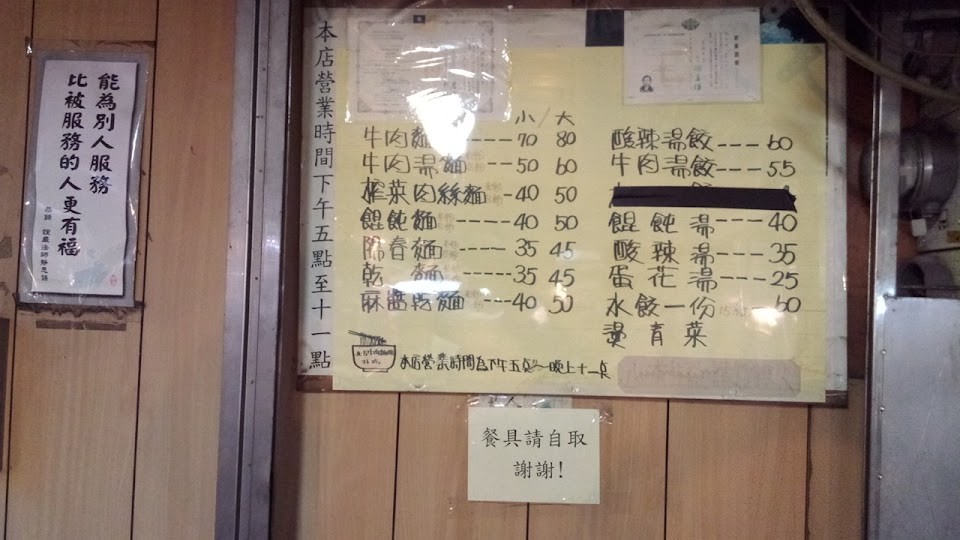 能為別人服務
比被服務的人更有福
恭錄 證嚴法師靜思語
本店營業時間下午五點至十一點
小/大
牛肉麵----70 80
牛肉湯麵---50 60
榨菜肉絲麵-40 50
餛飩麵----40 50
陽春麵----35 45
乾 麵-----35 45
麻醬乾麵---40 50
本店營業時間為下午五點~晚上十一點
酸辣湯餃---60
牛肉湯餃---55
餛飩湯----40
酸辣湯---35
蛋花湯---25
水餃一份 60
燙青菜
餐具請自取
謝謝!